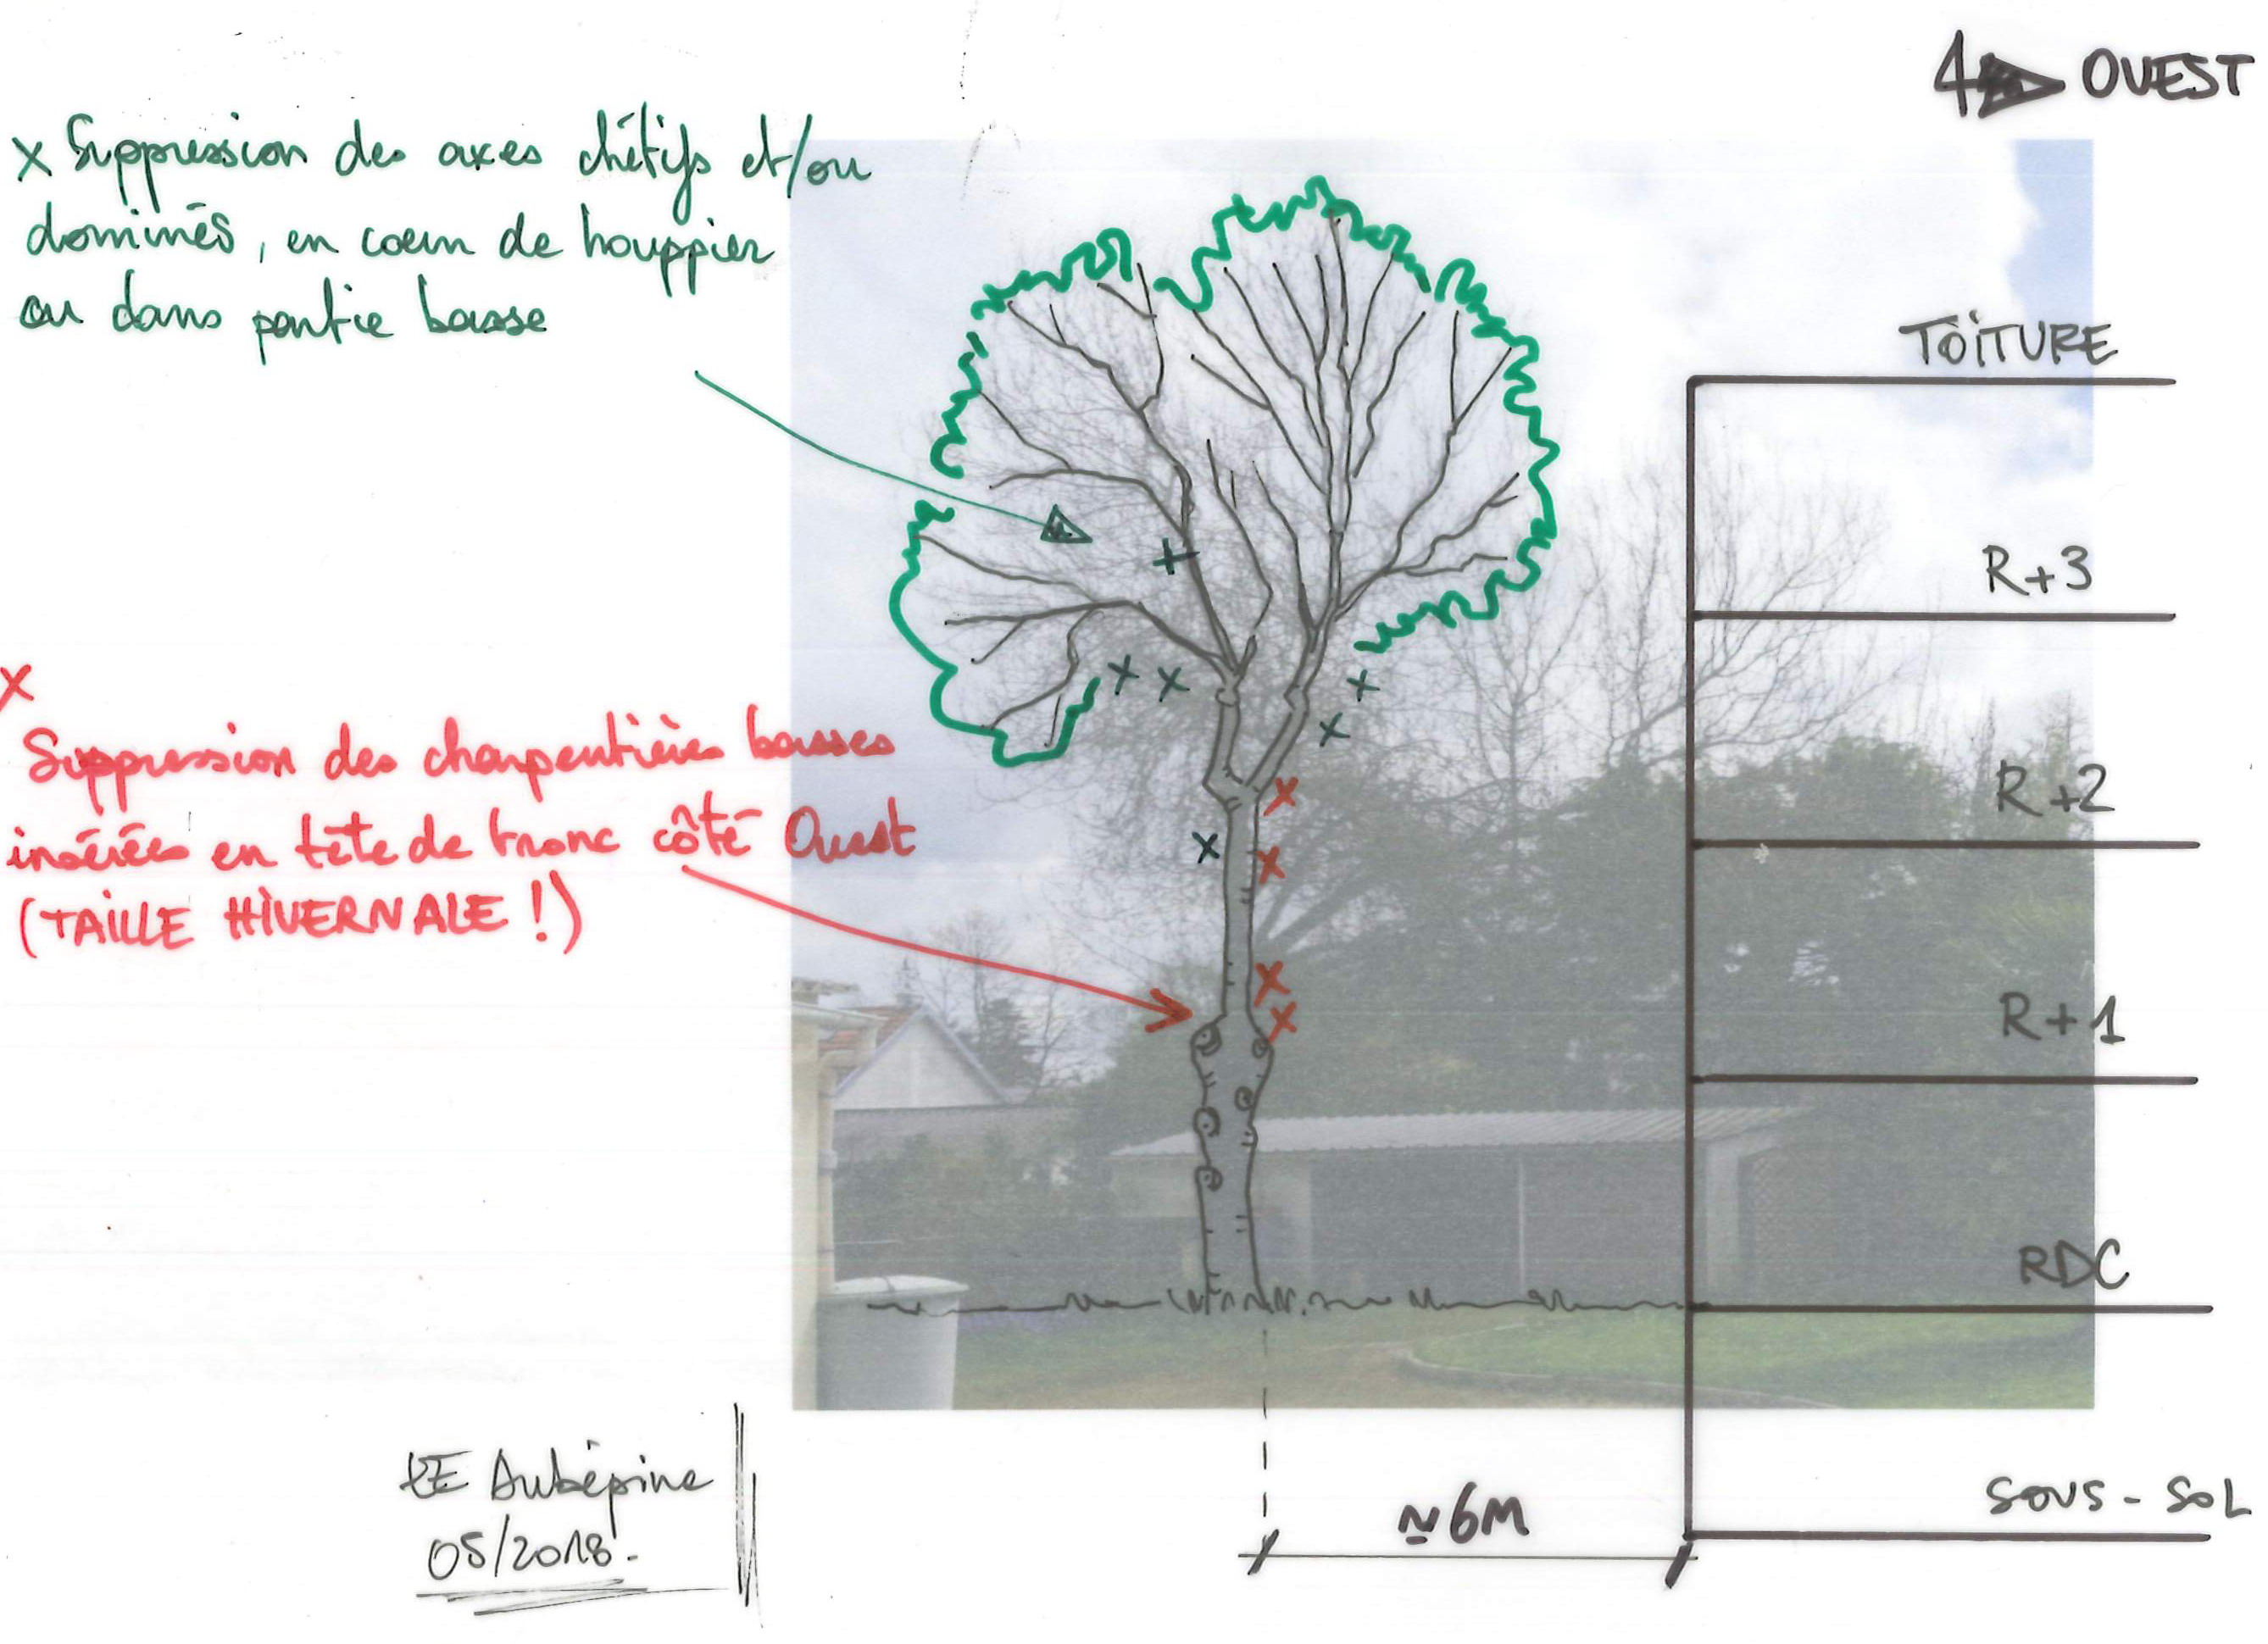 OUEST
x Suppression des axes chétifs et/ou
dominés, en coeur de houppier
ou dans partie basse
TOITURE
R+3
x
Suppression des charpentières basses
insérées en tête de tronc côté Ouest
(TAILLE HIVERNALE !)
R+2
R+1
RDC
SOUS-SOL
≈6M
Aubépine
05/2018.